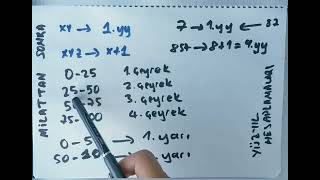 MİLATTAN SONRA
xy → 1.yy
xyz → x+1
0-25 1. çeyrek
25-50 2. çeyrek
3. çeyrek
4. çeyrek
→ 1. yarı
→ yarı
7 → 1.yy ← 82
857 → 8+1 = 9.yy
YÜZYIL
HESAPLAMALARI